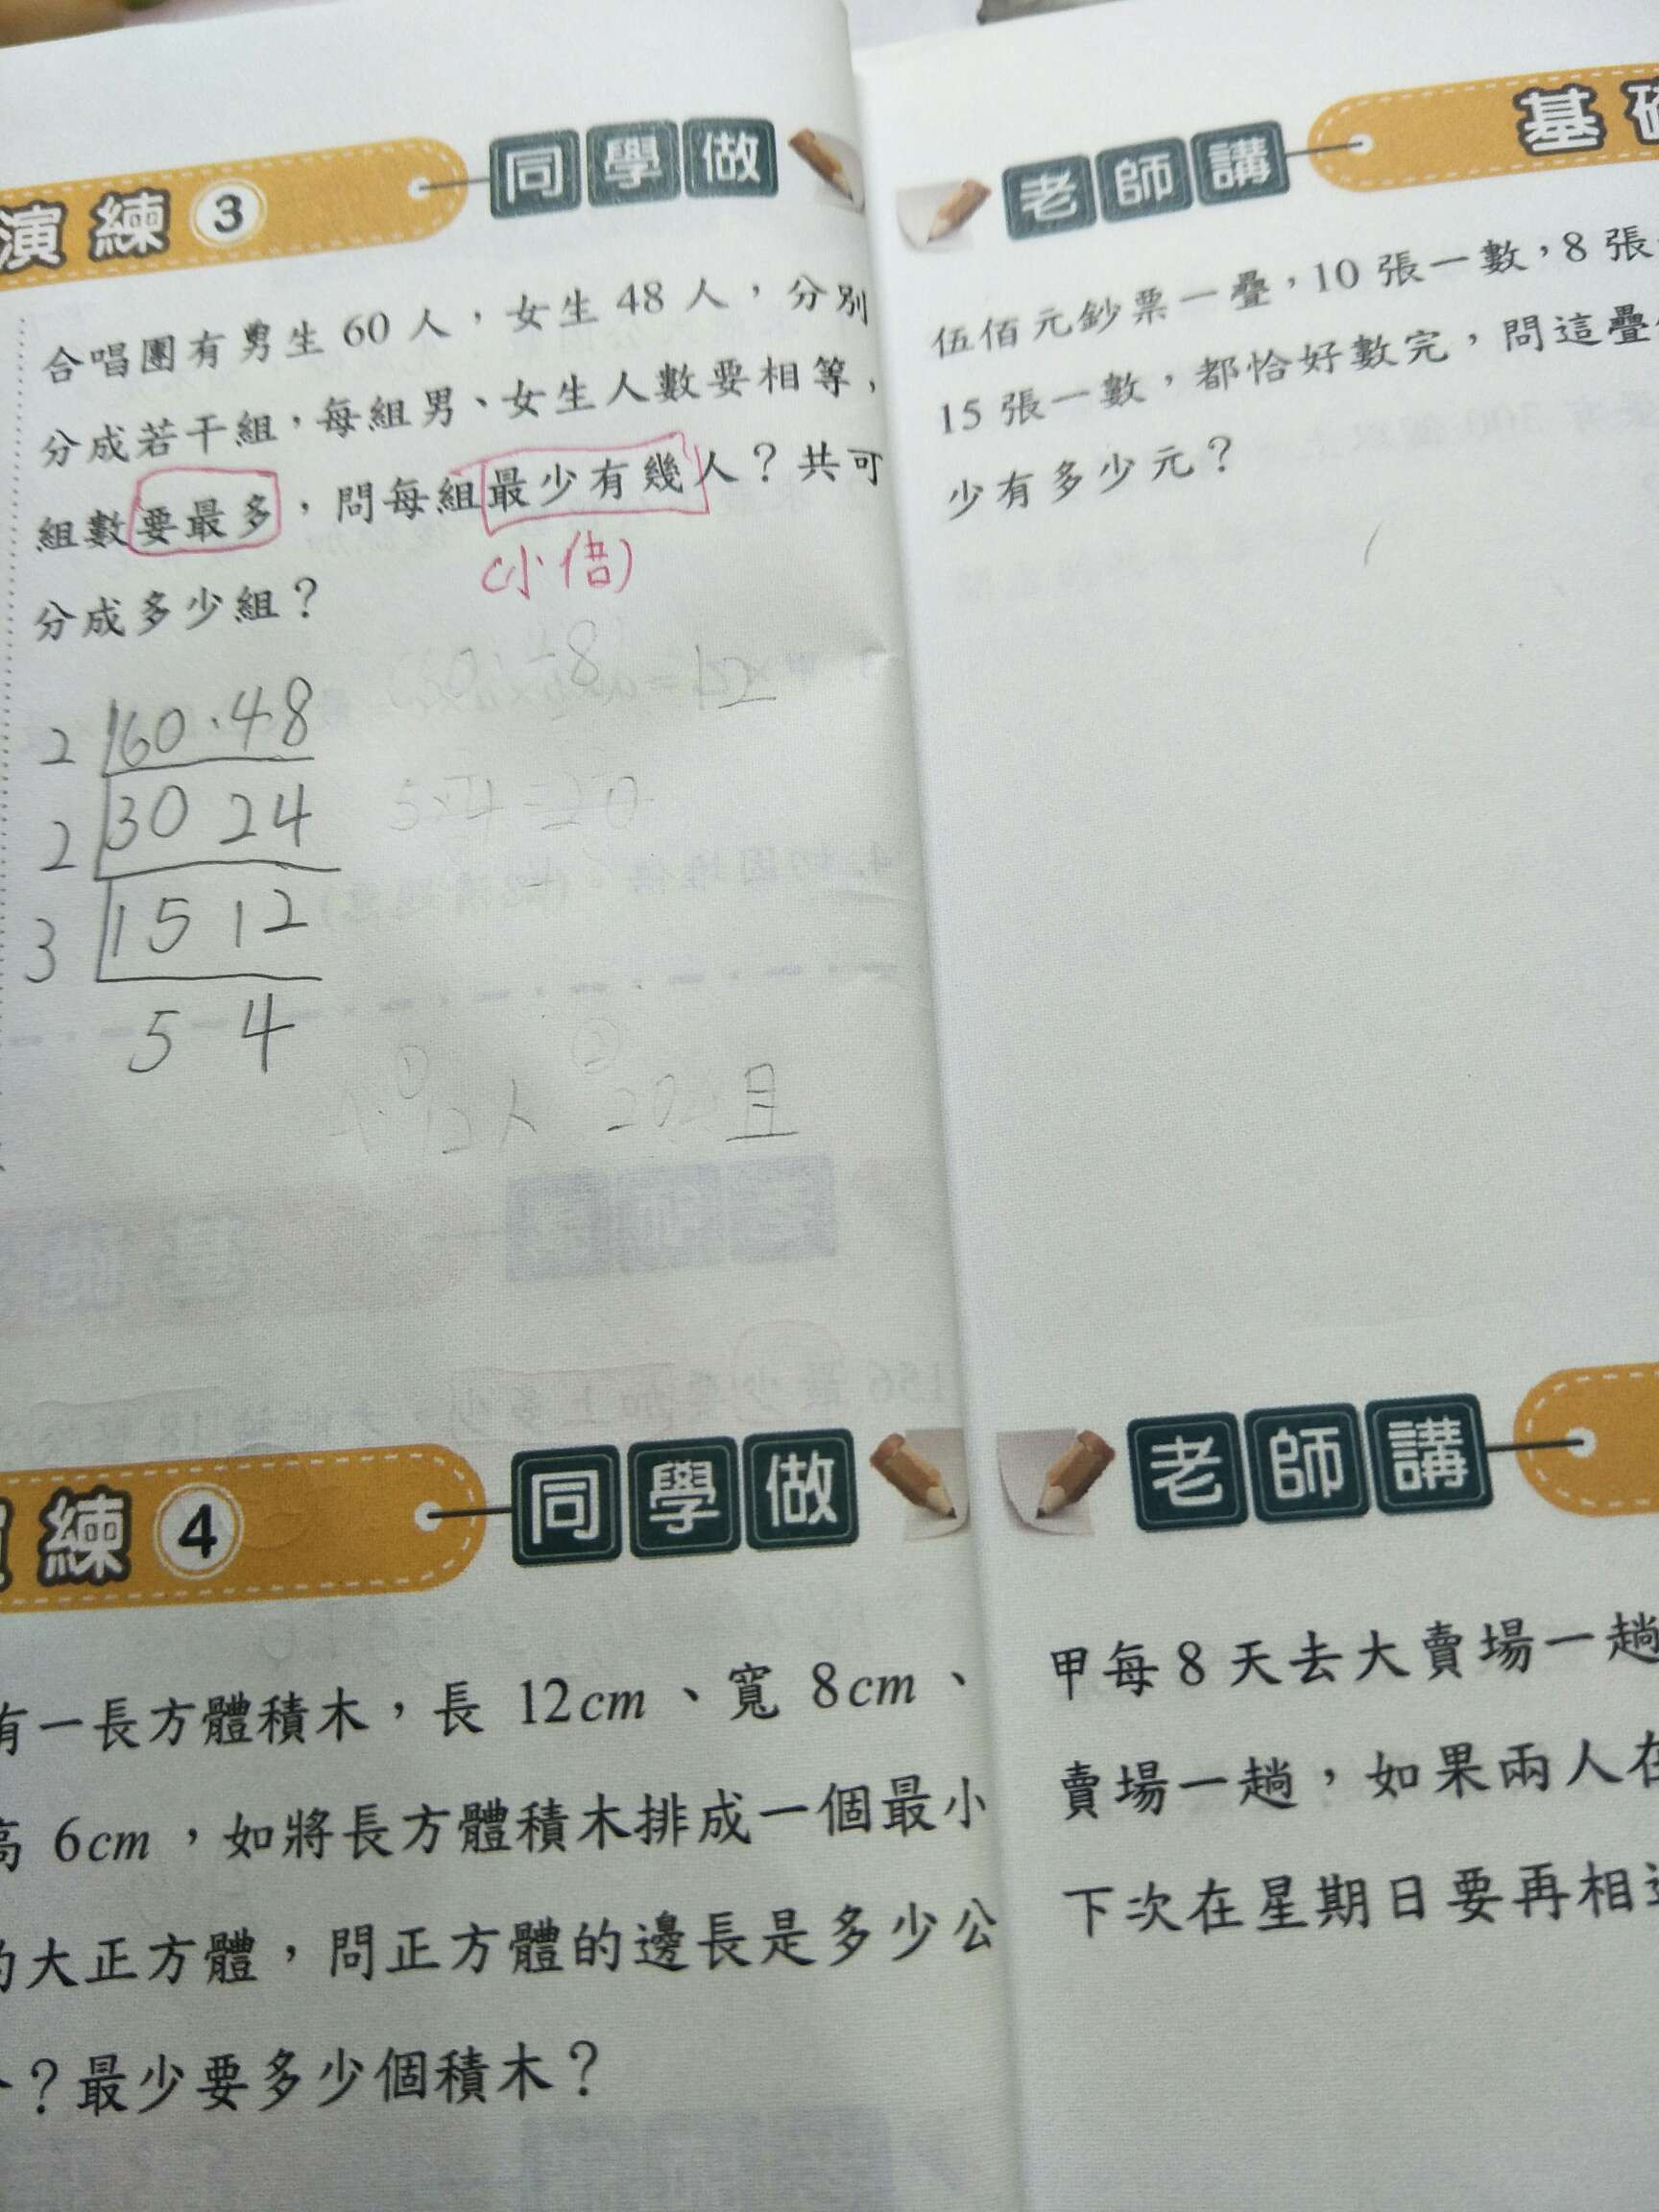 演練 3 同學做
合唱團有男生 60 人，女生 48 人，分別
分成若干組，每組男、女生人數要相等，
組數要最多，問每組最少有幾人？共可
(小倍)
分成多少組？
2 60．48
2 30 24
3 15 12
5 4
5×4=20
12人 20
練 4 同學做
有一長方體積木，長 12cm、寬 8cm、
高 6cm，如將長方體積木排成一個最小
的大正方體，問正方體的邊長是多少公
？最少要多少個積木？
老師講 基
伍佰元鈔票一疊，10 張一數，8 張
15 張一數，都恰好數完，問這疊
少有多少元？
老師講
甲每 8 天去大賣場一趟
賣場一趟，如果兩人在
下次在星期日要再相